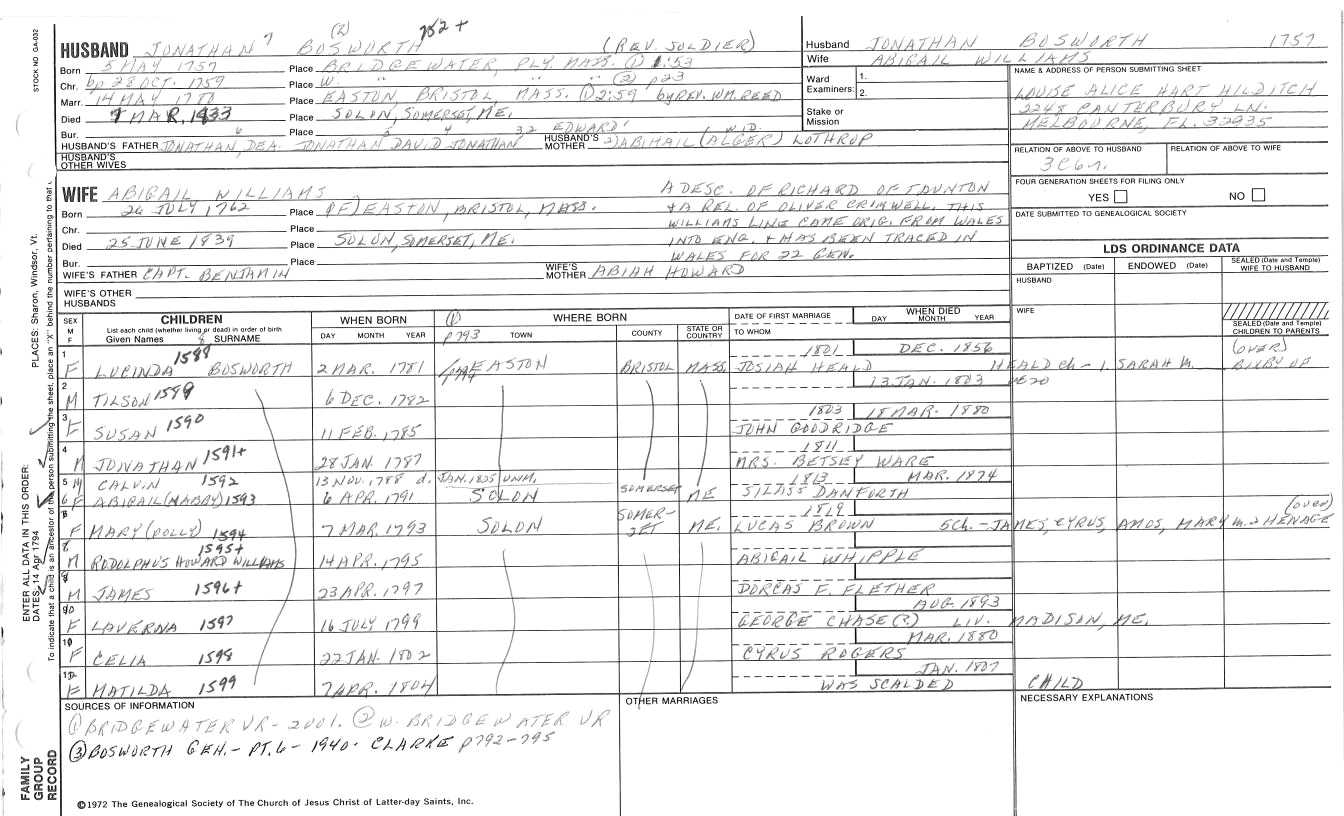 STOCK NO. GA-032
PLACES: Sharon, Windsor, Vt.
ENTER ALL DATA IN THIS ORDER:
DATES: 14 Apr 1794
To indicate that a child is an ancestor of the person submitting the sheet, place an "X" behind the number pertaining to that
FAMILY GROUP RECORD
HUSBAND JONATHAN 7 (2) BOSWORTH 752+ (REV. SOLDIER)
Born 5 MAY 1757 Place BRIDGEWATER, PLY. MASS. ① 1:53
Chr. bp 28 OCT. 1759 Place W. " " " ② p23
Marr. 14 MAY 1780 Place EASTON, BRISTOL, MASS. ① 2:59 by REV. WM. REED
Died MAR. 1833 Place SOLON, SOMERSET, ME.
Bur. Place
HUSBAND'S FATHER JONATHAN, DEA. 6 JONATHAN 5 DAVID 4 JONATHAN 32 EDWARD 1 HUSBAND'S MOTHER 2) ABIHAIL (ALGER) WID. LOTHROP
HUSBAND'S OTHER WIVES
WIFE ABIGAIL WILLIAMS
Born 26 JULY 1762 Place (F) EASTON, BRISTOL, MASS.
Chr. Place
Died 25 JUNE 1839 Place SOLON, SOMERSET, ME.
Bur. Place
A DESC. OF RICHARD OF TAUNTON
& A REL. OF OLIVER CRIMWELL. THIS
WILLIAMS LINE CAME ORIG. FROM WALES
INTO ENG. & HAS BEEN TRACED IN
WALES FOR 22 GEN.
WIFE'S FATHER CAPT. BENJAMIN WIFE'S MOTHER ABIAH HOWARD
WIFE'S OTHER HUSBANDS
Husband JONATHAN BOSWORTH 1757
Wife ABIGAIL WILLIAMS
Ward Examiners: 1. 2.
Stake or Mission
NAME & ADDRESS OF PERSON SUBMITTING SHEET
LOUISE ALICE HART HILDITCH
2248 CANTERBURY LN.
MELBOURNE, FL. 32935
RELATION OF ABOVE TO HUSBAND RELATION OF ABOVE TO WIFE
FOUR GENERATION SHEETS FOR FILING ONLY
YES NO
DATE SUBMITTED TO GENEALOGICAL SOCIETY
LDS ORDINANCE DATA
BAPTIZED (Date) ENDOWED (Date) SEALED (Date and Temple) WIFE TO HUSBAND
HUSBAND
WIFE
SEALED (Date and Temple) CHILDREN TO PARENTS
SEX M F
CHILDREN
List each child (whether living or dead) in order of birth
Given Names 8 SURNAME
WHEN BORN DAY MONTH YEAR
① p793 WHERE BORN TOWN COUNTY STATE OR COUNTRY
DATE OF FIRST MARRIAGE TO WHOM
WHEN DIED DAY MONTH YEAR
1 F LUCINDA 1588 BOSWORTH 2 MAR. 1781 EASTON BRISTOL MASS. 1801 JOSIAH HEALD DEC. 1856 HEALD Ch - 1. SARAH M. (OVER)
2 M TILSON 1589 6 DEC. 1782 13 JAN. 1803
3 F SUSAN 1590 11 FEB. 1785 1803 JOHN GOODRIDGE 18 MAR. 1880
4 M JONATHAN 1591+ 28 JAN. 1787 1811 MRS. BETSEY WARE
5 M CALVIN 1592 13 NOV. 1788 d. JAN. 1835 UNM. 1813 MAR. 1874
6 F ABIGAIL (NABBY) 1593 6 APR. 1791 SOLON SOMERSET ME SILASS DANFORTH
F MARY (POLLY) 1594 7 MAR. 1793 SOLON SOMERSET ME. 1819 LUCAS BROWN 5 Ch. - JAMES, CYRUS, AMOS, MARY m. 2 HENAGE (over)
M RODOLPHUS HOWARD WILLIAMS 1595+ 14 APR. 1795 ABIGAIL WHIPPLE
M JAMES 1596+ 23 APR. 1797 DORCAS F. FLETHER
F LAVERNA 1597 16 JULY 1799 GEORGE CHASE (?) AUG. 1893 LIV. MADISON, ME.
10 F CELIA 1598 22 JAN. 1802 CYRUS ROGERS MAR. 1880
F MATILDA 1599 7 APR. 1804 JAN. 1807 WAS SCALDED CHILD
SOURCES OF INFORMATION
① BRIDGEWATER VR - 2001. ② W. BRIDGEWATER VR
③ BOSWORTH GEN. - PT. 6 - 1940 - CLARKE p792-795
OTHER MARRIAGES
NECESSARY EXPLANATIONS
©1972 The Genealogical Society of The Church of Jesus Christ of Latter-day Saints, Inc.